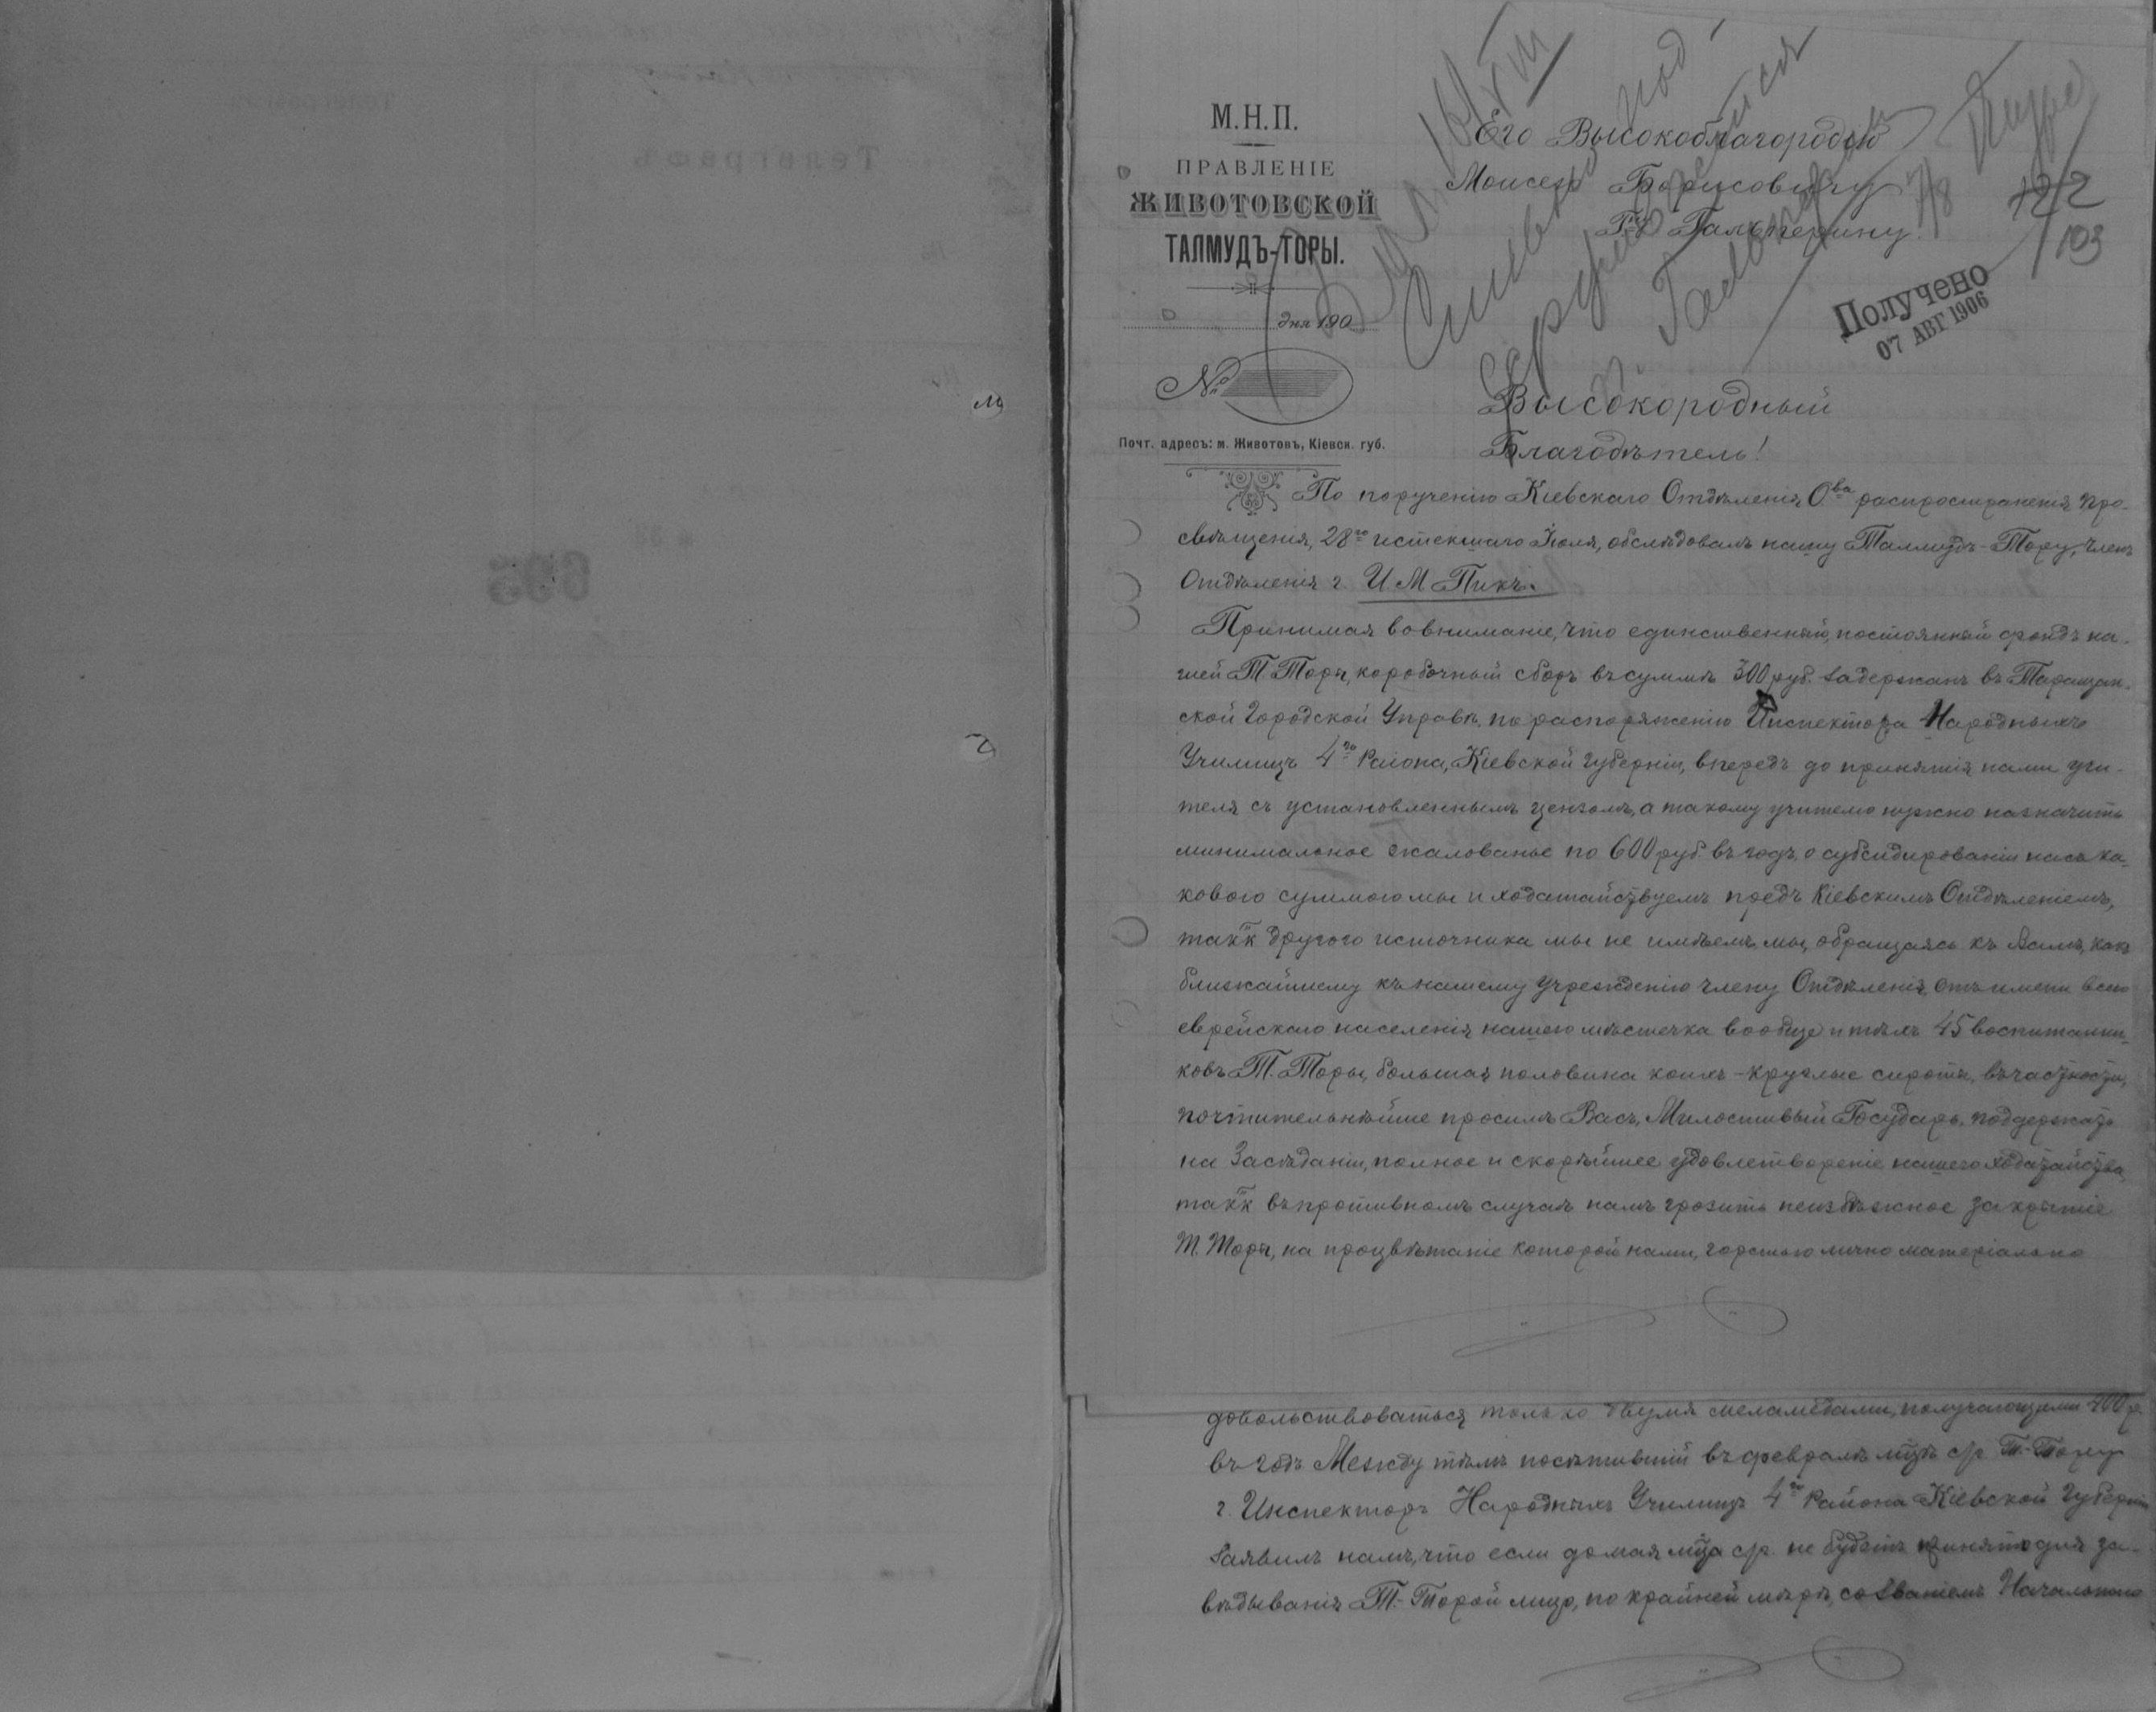 М.Н.П.
ПРАВЛЕНІЕ
ЖИВОТОВСКОЙ
ТАЛМУДЪ-ТОРЫ.
дня 190
№
Почт. адресъ: м. Животовъ, Кіевск. губ.
Его Высокоблагородію
Моисею Борисовичу
Г-ну Гальперину.
122
103
Получено
07 АВГ 1906
Высокородный
Благодѣтель!
По порученію Кіевскаго Отдѣленія О-ва распространенія про-
свѣщенія, 28го истекшаго Іюля, обслѣдовалъ нашу Талмудъ-Тору, членъ
Отдѣленія г. И. М Пикъ.
Принимая во вниманіе, что единственный, постоянный фондъ на-
шей Т. Торы, коробочный сборъ въ суммѣ 300 руб. задержанъ въ Таращан-
ской Городской Управѣ, по распоряженію Инспектора Народныхъ
Училищъ 4го Района, Кіевской губерніи, впредь до принятія нами учи-
теля съ установленнымъ цензомъ, а такому учителю нужно назначить
минимальное жалованье по 600 руб въ годъ, о субсидированіи насъ ка-
ковою суммою мы и ходатайствуемъ предъ Кіевскимъ Отдѣленіемъ,
такъ к другого источника мы не имѣемъ, мы, обращаясь къ Вамъ, какъ
ближайшему къ нашему учрежденію члену Отдѣленія, отъ имени всего
еврейскаго населенія нашего мѣстечка вообще и тѣхъ 45 воспитанни-
ковъ Т. Торы, большая половина коихъ - круглые сироты, въ частности,
почтительнѣйше просимъ Васъ, Милостивый Государь, поддержать
на Засѣданіи, полное и скорѣйшее удовлетвореніе нашего ходатайства,
такъ к въ противномъ случаѣ намъ грозитъ неизбѣжное закрытіе
Т. Торы, на процвѣтаніе которой нами, горстью лично матеріально
довольствоваться только двумя меламедами, получающими 400 р
въ годъ Между тѣмъ посѣтившій въ февралѣ мцѣ с/г Т.-Тору
г. Инспекторъ Народныхъ Училищъ 4го Района Кіевской Губерніи
заявилъ намъ, что если до мая мца с/г. не будетъ принято для за-
вѣдыванія Т.-Торой лицо, по крайней мѣрѣ, со званіемъ Начальнаго